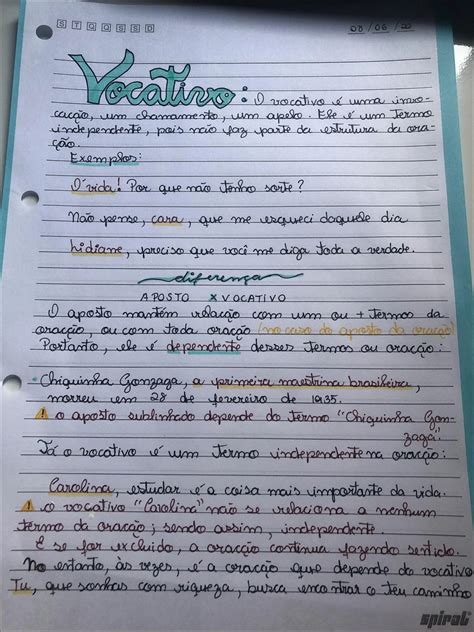 S T Q Q S S D
08/06/20
Vocativo: O vocativo é uma invo-
cação, um chamamento, um apelo. Ele é um termo
independente, pois não faz parte da estrutura da ora-
ção.
Exemplos:
Ó vida! Por que não tenho sorte?
Não pense, cara, que me esqueci daquele dia
Lidiane, preciso que você me diga toda a verdade.
diferença
APOSTO X VOCATIVO
O aposto mantém relação com um ou + termos da
oração, ou com toda oração (no caso do aposto da oração)
Portanto, ele é dependente desses termos ou oração:
• Chiquinha Gonzaga, a primeira maestrina brasileira,
morreu em 28 de fevereiro de 1935.
⚠ o aposto sublinhado depende do termo "Chiquinha Gon-
zaga."
Já o vocativo é um termo independente na oração:
Carolina, estudar é a coisa mais importante da vida.
⚠ o vocativo "Carolina" não se relaciona a nenhum
termo da oração; sendo assim, independente.
E se for excluído, a oração continua fazendo sentido.
No entanto, às vezes, é a oração que depende do vocativo
Tu, que sonhas com riqueza, busca encontrar o teu caminho
spiral